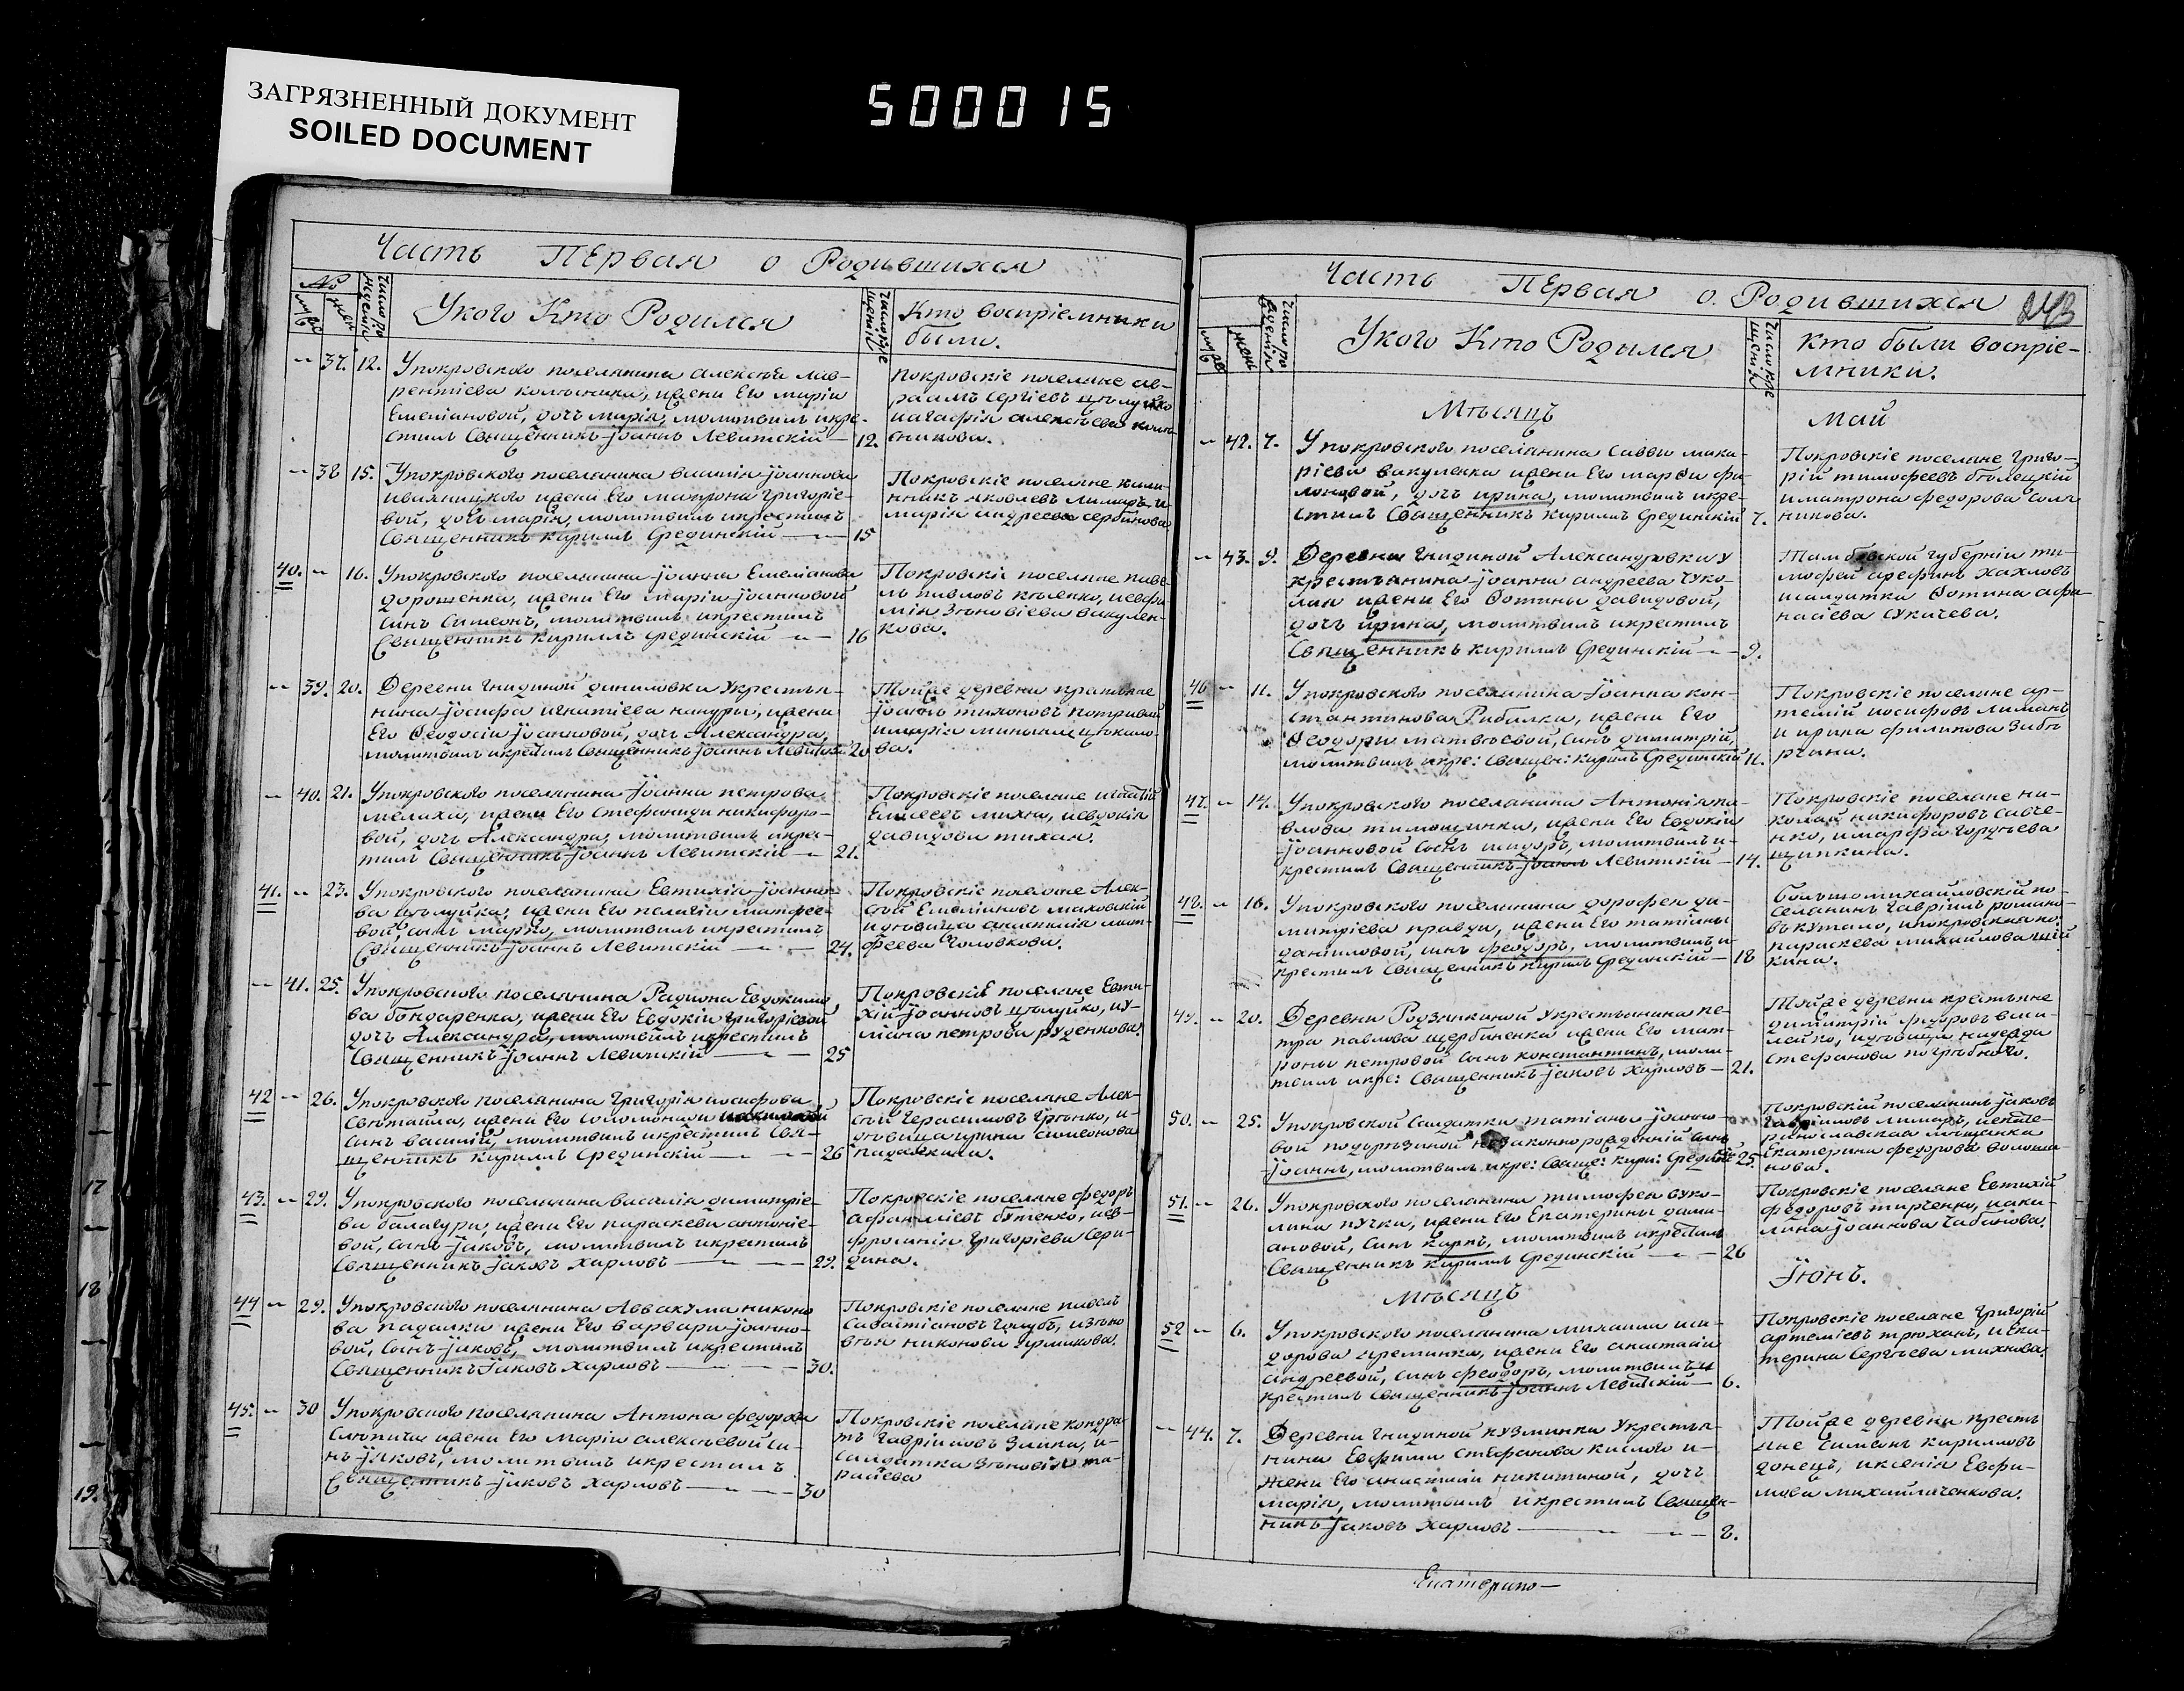 ЗАГРЯЗНЕННЫЙ ДОКУМЕНТ
SOILED DOCUMENT
500015
Часть ПЕрвая о Родившихся
№
Число рождения
Укого Кто Родился
Число крещенія
Кто воспріемники
были.
37. 12. Упокровского поселянина алексѣя лав-
рентіева колесника, жени Его маріи
Емеліановой, дочь марія, молитвилъ икре-
стилъ Священникъ Іоаннъ Левитскій 12.
Покровскіе поселяне ав-
раамъ сергіевъ
иагафія алексѣева
никова.
38 15. Упокровского поселянина василія Іоаннова
жени Его матрони григоріе-
вой, дочь марія, молитвилъ икрестилъ
Священникъ кириллъ Срединскій 15
Покровскіе поселяне
яковлевъ лимаръ, и
марія андреева сербинова
40. 16. Упокровского поселянина Іоанна Емеліанова
дорошенка, жени Его маріи Іоанновой
синъ Симеонъ, молитвилъ икрестилъ
Священникъ кириллъ Срединскій 16
Покровскіе поселяне паве-
лъ павловъ
мія Зѣновіева вакулен-
кова.
39. 20. Деревни гнидиной даниловки Укрестья-
нина Іосифа игнатіева жени
Его Феодосіи Іоанновой, дочь Александра,
молитвилъ икрестилъ Священникъ Іоаннъ Левитскій 20
Тойже деревни крестьяне
Іоаннъ тихоновъ
имарія
ва.
40. 21. Упокровского поселянина Іоанна петрова
мелихи, жени Его Стефаниди никифоро-
вой, дочь Александра, молитвилъ икрес-
тилъ Священникъ Іоаннъ Левитскій 21.
Покровскіе поселяне игнатій
Елисеевъ михно, иевдокія
давидова тихая.
41. 23. Упокровского поселянина Евтихія Іоанно-
ва цѣлуйка, жени Его пелагіи матфее-
вой, синъ марко, молитвилъ икрестилъ
Священникъ Іоаннъ Левитскій 24.
Покровскіе поселяне Алек-
сѣй Емеліановъ маковскій
идѣвица анастасія мат-
феева Головкова.
41. 25. Упокровского поселянина Радиона Евдокимо-
ва бондаренка, жени Его Евдокіи григоріевой
дочь Александра, молитвилъ икрестилъ
Священникъ Іоаннъ Левитскій 25
ПокровскіЕ поселяне Евти-
хій Іоанновъ цѣлуйко, иу-
ліана петрова руденкова.
42 26. Упокровского поселянина григорія иосифова
Свѣтайла, жени Его соломониди
синъ василій, молитвилъ икрестилъ Свя-
щенникъ кириллъ Срединскій 26
Покровскіе поселяне Алек-
сѣй Герасимовъ и-
дѣвица ирина Симеонова
падалкина.
43. 29. Упокровского поселянина василія димитріе-
ва балагури, жени Его параскеви антоніе-
вой, Синъ Іаковъ, молитвилъ икрестилъ
Священникъ Іаковъ Харловъ 29.
Покровскіе поселяне федоръ
афанасіевъ бутенко, иев-
фросинія Григоріева Сери-
дина.
44 29. Упокровского поселянина Аввакума никоно-
ва падалки жени Его варвари Іоанно-
вой, Синъ Іаковъ, молитвилъ икрестилъ
Священникъ Іаковъ Харловъ 30.
Покровскіе поселяне павелъ
Савастіановъ голубъ, изѣно
вія никонова ярмакова.
45. 30 Упокровского поселянина Антона федорова
жени Его маріи алексѣевой си-
нъ Іаковъ, молитвилъ икрестилъ
Священникъ Іаковъ Харловъ 30
Покровскіе поселяне кондра-
тъ гавріиловъ Заика, и-
салдатка Зѣновія та-
расіева
Часть ПЕрвая о Родившихся 243
Число рождения
Укого Кто Родился
Число крещенія
Кто были воспріе-
мники.
Мѣсяцъ Май
42. 7. Упокровского поселянина Саввы мака-
ріева вакуленка жени Его марфи фи-
лоновой, дочь ирина, молитвилъ икре-
стилъ Священникъ кириллъ Срединскій 7.
Покровскіе поселяне григо-
рій тимофеевъ бѣлецкій
иматрона федорова сала
никова.
43. 9. Деревни гнидиной Александровки у
крестьянина Іоанна андреева чуко-
лая жени Его Фотины давидовой,
дочь ирина, молитвилъ икрестилъ
Священникъ кириллъ Срединскій 9.
Тамбовской губерніи ти-
мофей арефинъ хахловъ
исалдатка Фотина афа-
насіева сукачева.
46 11. Упокровского поселянина Іоанна кон-
стантинова Рибалки, жени Его
Феодори матвѣевой, синъ димитрій,
молитвилъ икре: Священ: кирилъ Срединскій 11.
Покровскіе поселяне ар-
темій иосифовъ лиманъ
и ирина филипова забѣ
рина.
47. 14. Упокровского поселянина Антонія па-
влова тимошинка, жени Его Евдокіи
Іоанновой синъ исидоръ, молитвилъ и-
крестилъ Священникъ Іоаннъ Левитскій 14.
Покровскіе поселяне ни-
колай никифоровъ савче-
нко, имарфа гордѣева
щипкина.
48. 16. Упокровского поселянина дорофея ди-
митріева правди, жени Его татіани
даніиловой, синъ феодоръ, молитвилъ и-
крестилъ Священникъ кирилъ Срединскій 18
большомихайловскій по-
селянинъ гавріилъ романо-
въ кутало, ипокровская
параскева михайлова
кина.
49. 20. Деревни Родзянкиной Укрестьянина пе-
тра павлова щербиненка жени Его мат-
рони петровой синъ константинъ, моли-
твилъ икре: Священникъ Іаковъ Харловъ 21.
Тойже деревни крестьяне
димитрій федоровъ васи-
лейко, идѣвица надежда
Стефанова погрѣбного.
50. 25. Упокровской Салдатки татіаны Іоанно-
вой незаконнорожденній синъ
Іоаннъ, молитвилъ икре: Свяще: кири: Средин 25.
Покровскій поселянинъ Іаковъ
гавріиловъ лимаръ, иекате-
ринославская мѣщанка
Екатерина федорова волоши
нова.
51. 26. Упокровского поселянина тимофея вуко-
лина пучка, жени Его Екатерины дами-
ановой, синъ карпъ, молитвилъ икрестилъ
Священникъ кириллъ Срединскій 26
Покровскіе поселяне Евтихій
федоровъ ткаченко, иаки-
лина Іоаннова Чабанова.
Мѣсяцъ Іюнь.
52 6. Упокровского поселянина михаила иси-
дорова яременка, жени Его анастасіи
андреевой, синъ феодоръ, молитвилъ и
крестилъ Священникъ Іоаннъ Левитскій 6.
Покровскіе поселяне григорій
артеміевъ трюханъ, и Ека-
терина Сергѣева михнова.
44. 7. Деревни гнидиной кузминки Укрестья-
нина Евфима Стефанова кислого и-
жени Его анастасіи никитиной, дочь
марія, молитвилъ икрестилъ Священ-
никъ Іаковъ Харловъ 8.
Тойже деревни кресть
яне Симеонъ кирилловъ
донецъ, иксенія Евфи-
мова михайличенкова.
Екатерино-
17
18
19.